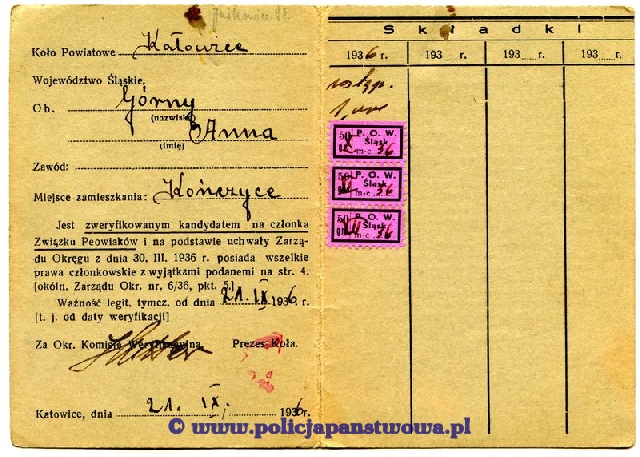 Koło Powiatowe Katowice
Województwo Śląskie.
Ob. Górny
(nazwisko)
Anna
(imię)
Zawód:
Miejsce zamieszkania: Kończyce
Jest zweryfikowanym kandydatem na członka
Związku Peowiaków i na podstawie uchwały Zarzą-
du Okręgu z dnia 30. III. 1936 r. posiada wszelkie
prawa członkowskie z wyjątkami podanemi na str. 4.
[okóln. Zarządu Okr. nr. 6/36, pkt. 5]
Ważność legit. tymcz. od dnia 21. IX 1936 r.
[t. j. od daty weryfikacji]
Za Okr. Komisję Weryfikacyjną Prezes Koła.
Katowice, dnia 21. IX. 1936 r.
Składki
1936 r. 193 r. 193 r. 193 r.
50 P. O. W.
gr. Śląsk
m-c 36
50 P. O. W.
gr. Śląsk
m-c 36
50 P. O. W.
gr. Śląsk
m-c 36
© www.policjapanstwowa.pl